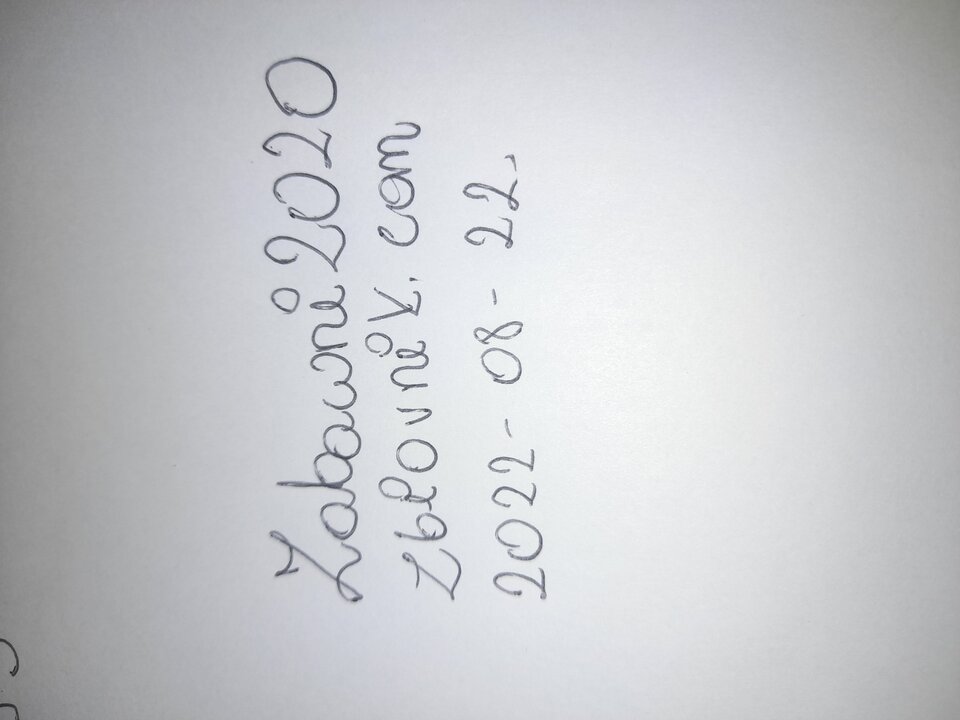 Zabawni2020
Zblovnik.com
2022-08-22.